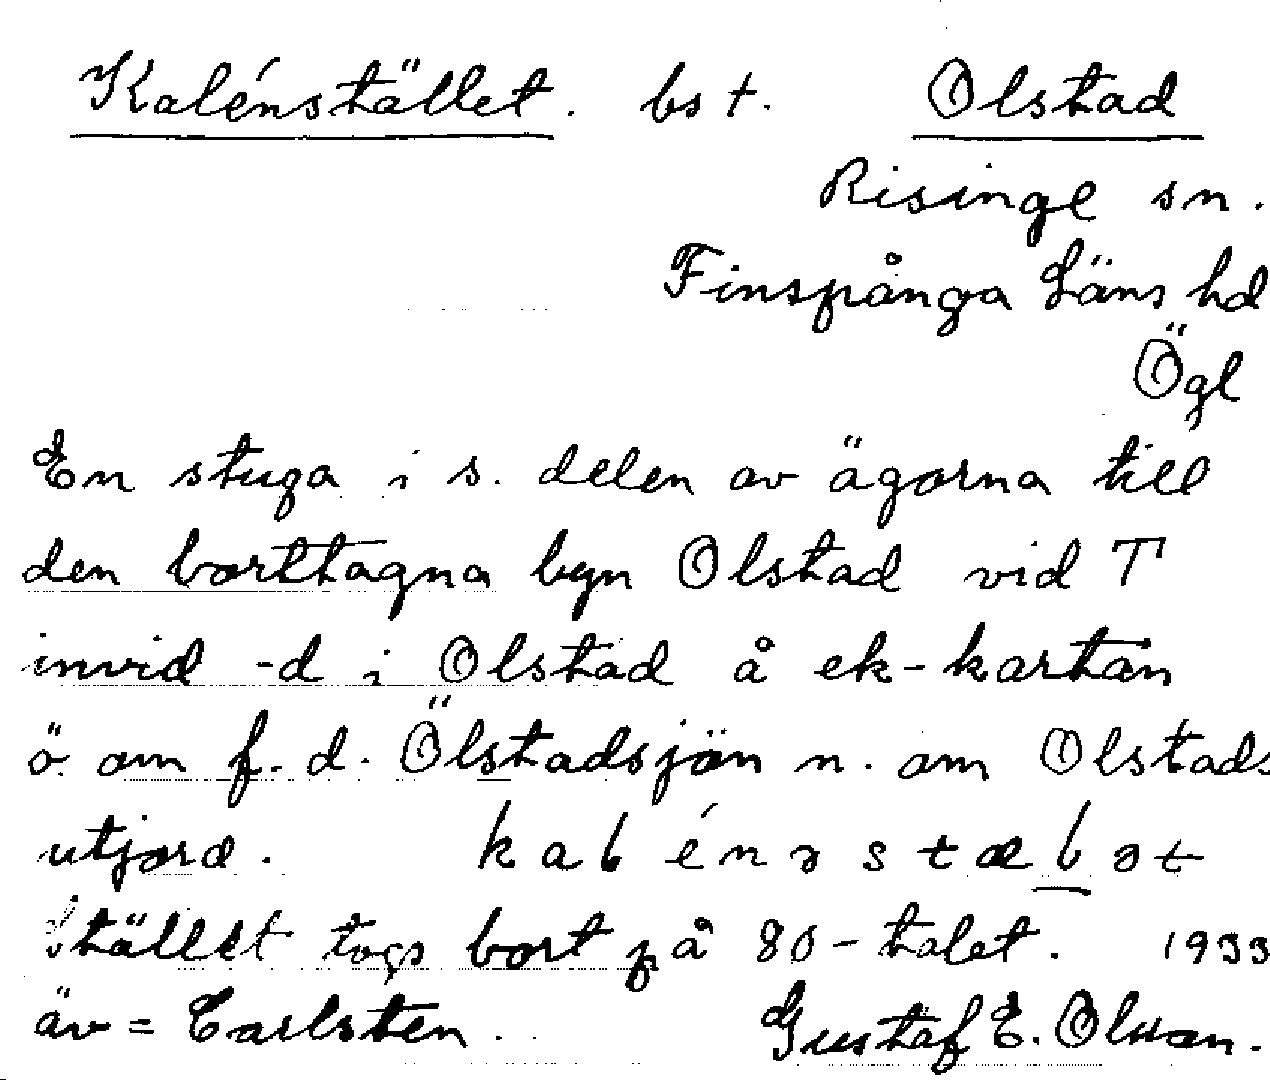 Kalénstället. bst. Olstad
Risinge sn.
Finspånga Läns hd
Ögl
En stuga i s. delen av ägorna till
den borttagna byn Olstad vid T
invid -d i Olstad å ek-kartan
ö. om f. d. Ölstadsjön n. om Olstads
utjord.
Stället togs bort på 80-talet. 1933
äv = Carlsten. Gustaf E. Olsson.